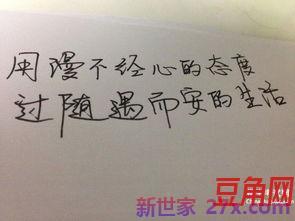 用漫不经心的态度
过随遇而安的生活
豆角网
新世家 27x.com